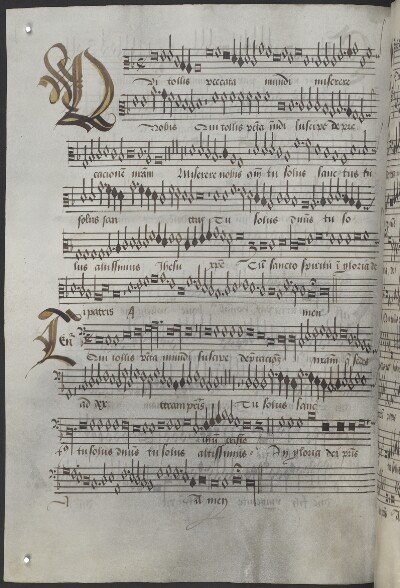 Qui tollis peccata mundi miserere
nobis Qui tollis pcta mdi suscipe depre
cacionem nram Miserere nobis qm tu solus sanctus tu
solus san ctus Tu solus dnus tu so
lus altissimus Ihesu xpe Cu sancto spiritu i gloria de
i patris A men
Ten
Qui tollis pcta mundi suscipe deprecacione nram q sedes
ad dex teram pris Tu solus sanc
tus tu solus dnus tu solus altissimus In gloria dei pris
A men